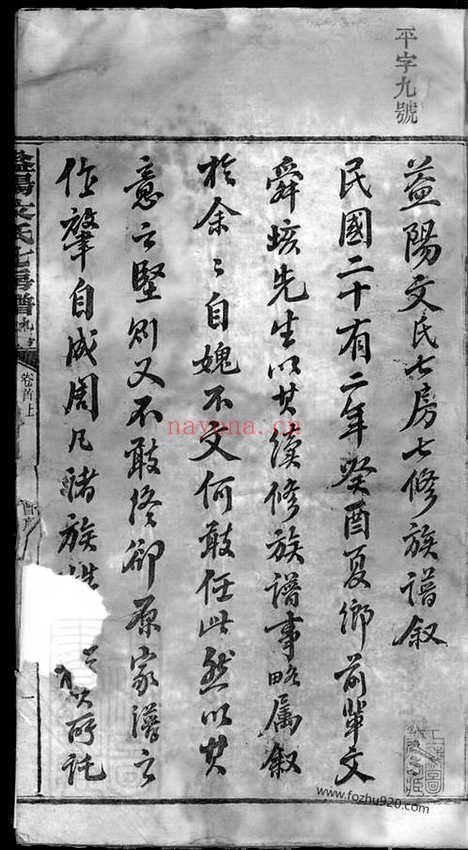 平字九號
益陽文氏七房七修族譜叙
民國二十有二年癸酉夏鄉前輩文
舜垓先生以其續修族譜事略属叙
於余〻自媿不文何敢任此然以其
意之堅則又不敢終卻原家譜之
作肇自成周凡諸族
所託
益陽文氏七房譜
卷首上
nayona.cn
www.fozhu920.com